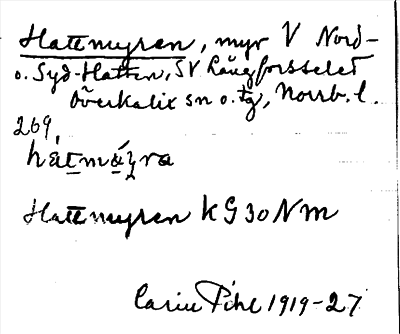 Hattmyren, myr V Nord-
o. Syd-Hatten, SV Långforsselet
Överkalix sn o. tg, Norrb. l.
269.
Hattmyren KG 30 Nm
Carin Pihl 1919-27